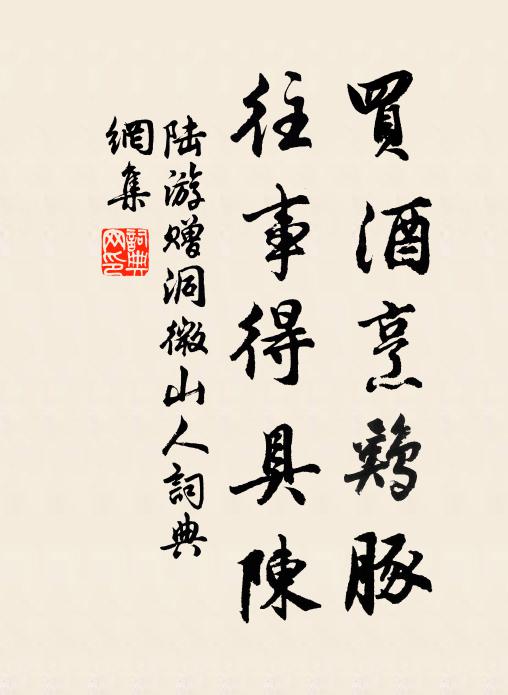 買酒烹鷄豚
往事得具陳
陆游赠洞微山人詞典
網集
詞典
网印